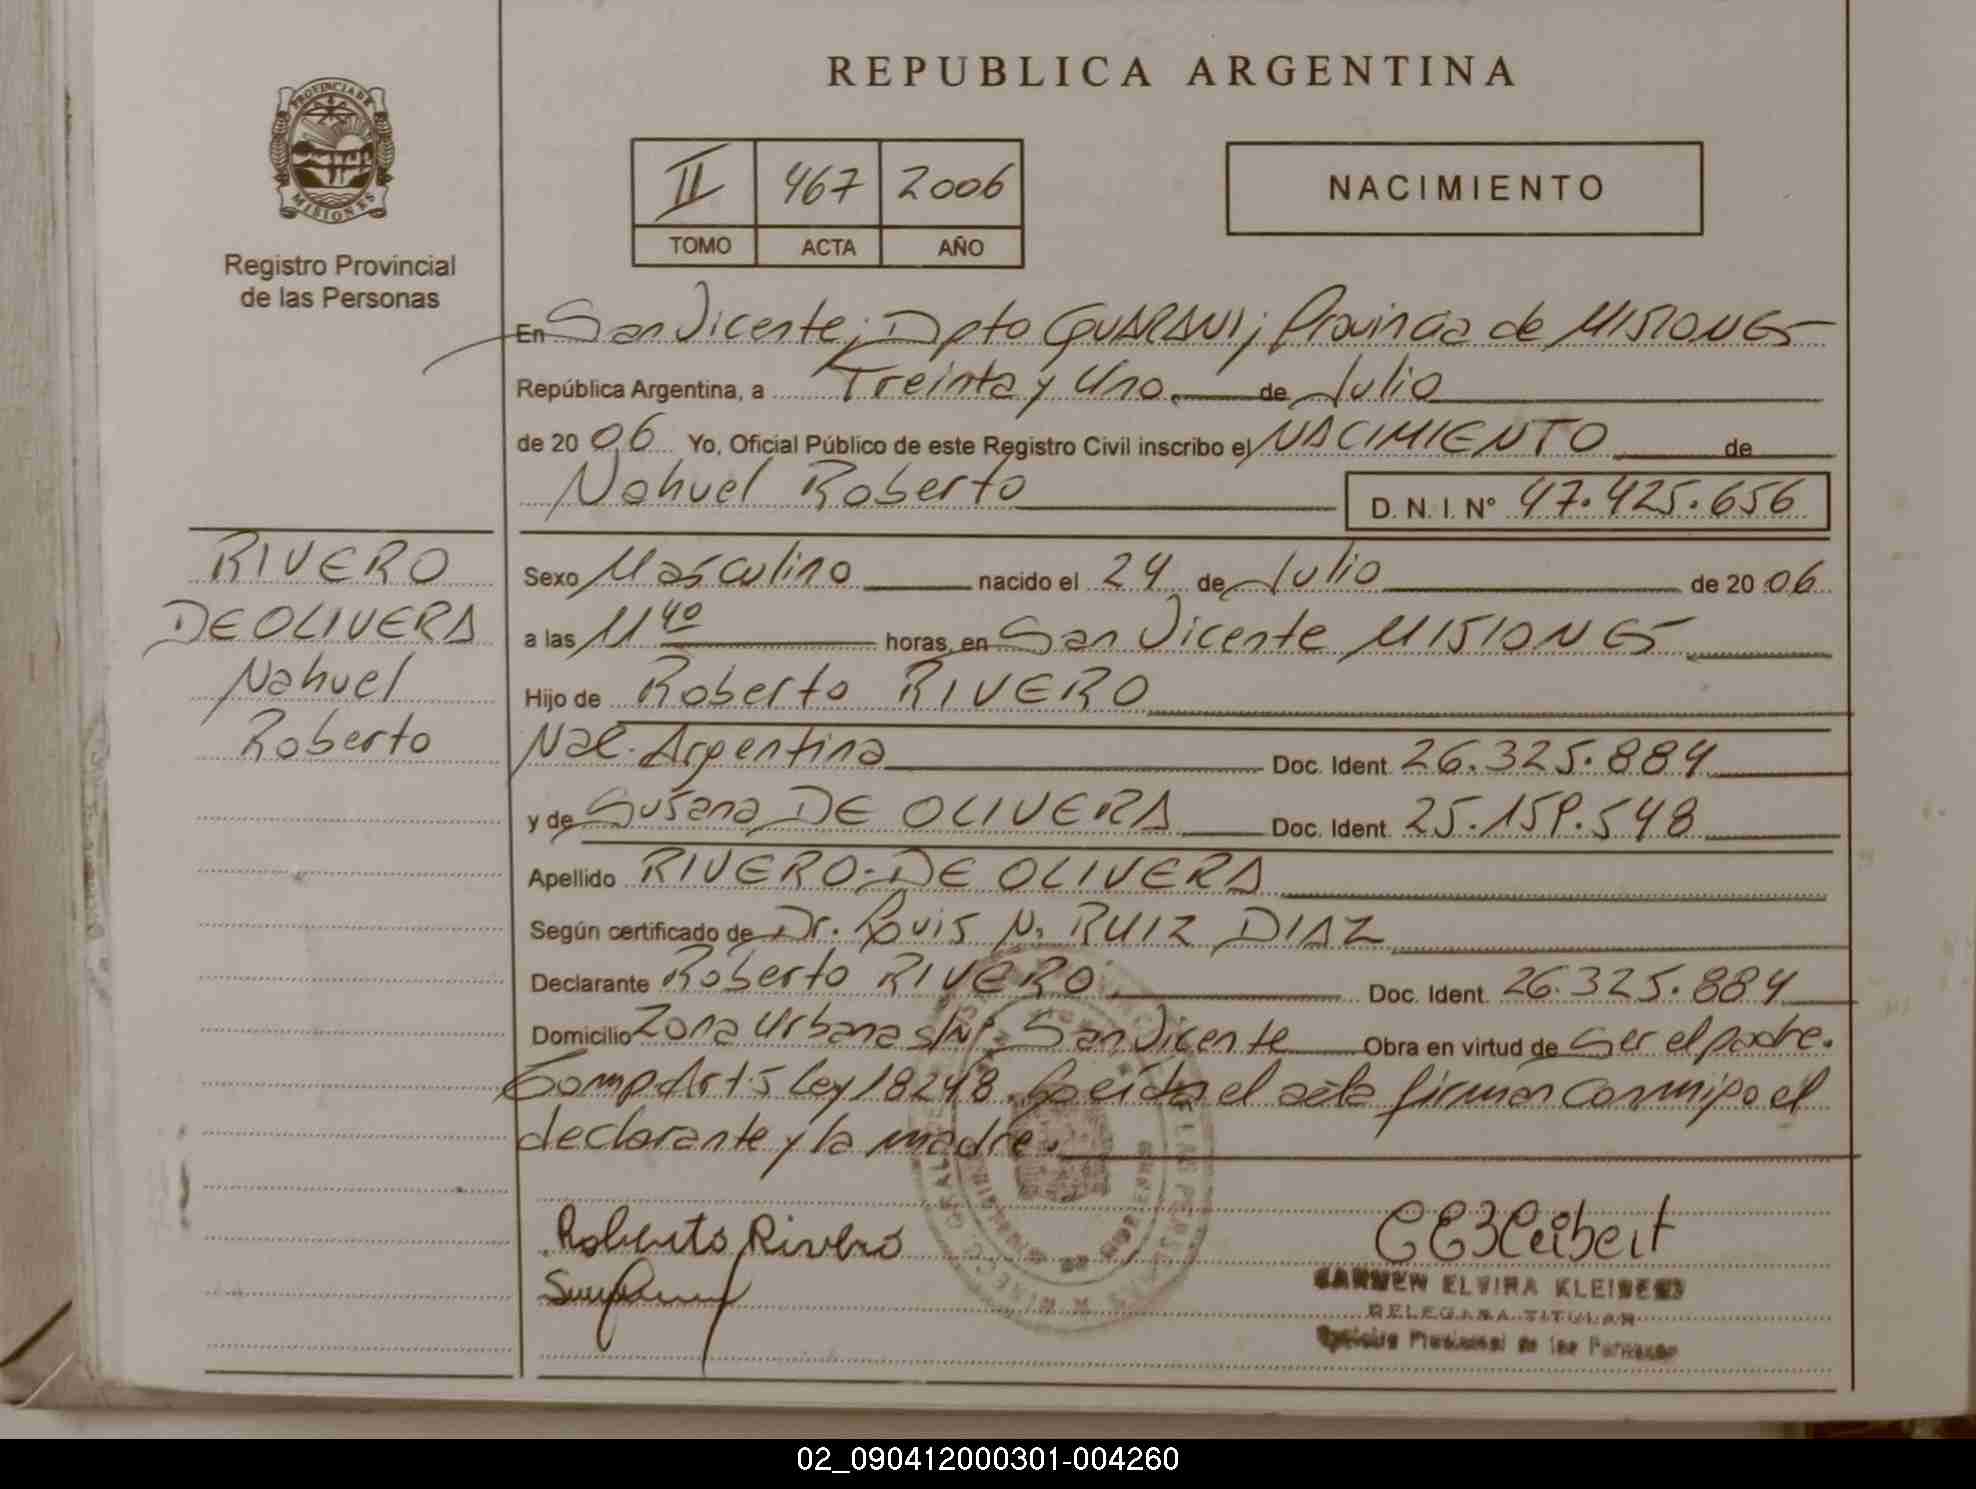 REPUBLICA ARGENTINA
PROVINCIA DE MISIONES
Registro Provincial
de las Personas
II 467 2006
TOMO ACTA AÑO
NACIMIENTO
En San Vicente, Dpto GUARANI, Provincia de MISIONES
República Argentina, a Treinta y Uno de Julio
de 2006 Yo, Oficial Público de este Registro Civil inscribo el NACIMIENTO de
Nahuel Roberto D. N. I. Nº 47.425.656
RIVERO
DE OLIVERA
Nahuel
Roberto
Sexo Masculino nacido el 24 de Julio de 2006
a las 11 40 horas, en San Vicente MISIONES
Hijo de Roberto RIVERO
Nac. Argentina Doc. Ident. 26.325.884
y de Susana DE OLIVERA Doc. Ident. 25.159.548
Apellido RIVERO-DE OLIVERA
Según certificado de Dr. Louis N. RUIZ DIAZ
Declarante Roberto RIVERO Doc. Ident. 26.325.884
Domicilio Zona Urbana s/Nº San Vicente Obra en virtud de Ser el padre.
Comp. Art 5 Ley 18248. Leída el acta firman conmigo el
declarante y la madre.
Roberto Rivero
CARMEN ELVIRA KLEIBERT
DELEGADA TITULAR
Registro Provincial de las Personas
02_090412000301-004260